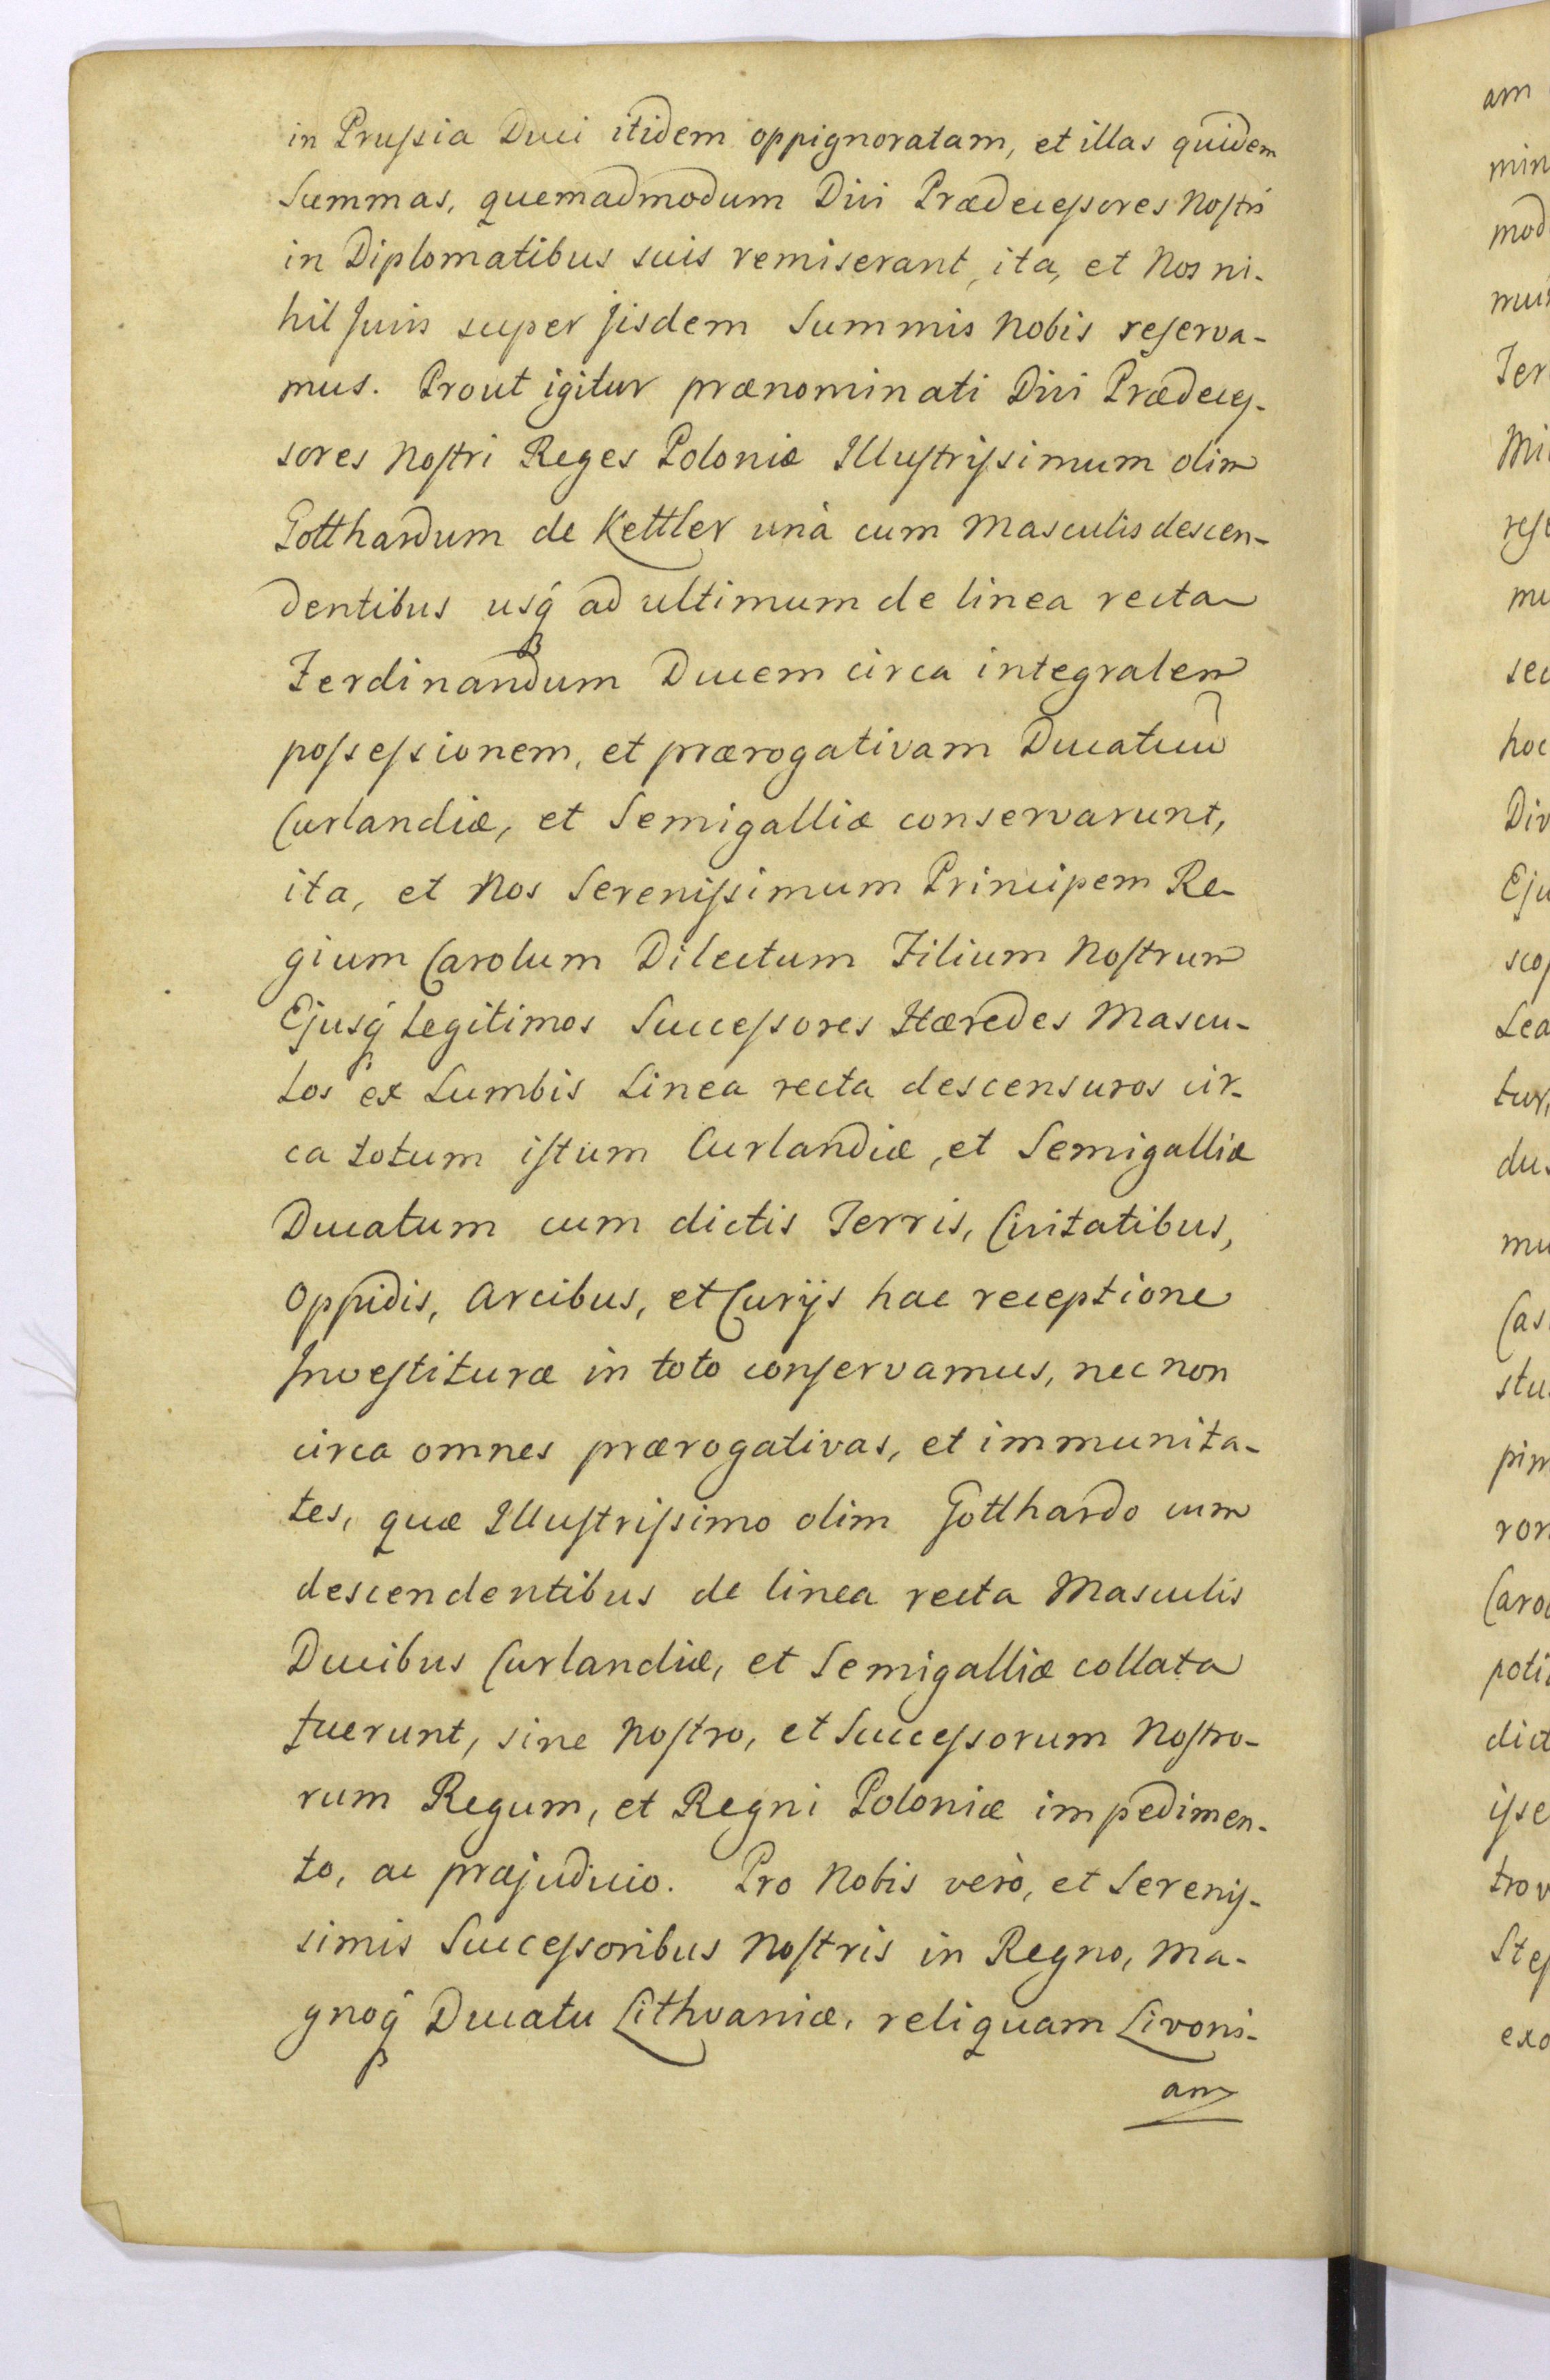 in Prussia Duci itidem oppignoratam, et illas quidem
Summas, quemadmodum Divi Prædecessores Nostri
in Diplomatibus suis remiserant, ita, et Nos ni-
hil Juris super Jisdem Summis Nobis reserva-
mus. Prout igitur prænominati Divi Prædeces-
sores Nostri Reges Poloniæ Illustrissimum olim
Gotthardum de Kettler unà cum Masculis descen-
dentibus usq́ ad ultimum de linea recta
Ferdinandum Ducem circa integralem
possessionem, et prærogativam Ducatuũ
Curlandiæ, et Semigalliæ conservarunt,
ita, et Nos Serenissimum Principem Re-
gium Carolum Dilectum Filium Nostrum
Ejusq́ Legitimos Successores Hæredes Mascu-
los ex Lumbis Linea recta descensuros cir-
ca totum istum Curlandiæ, et Semigalliæ
Ducatum cum dictis Terris, Civitatibus,
Oppidis, Arcibus, et Curijs hac receptione
Investituræ in toto conservamus, nec non
circa omnes prærogativas, et immunita-
tes, quæ Illustrissimo olim Gotthardo cum
descendentibus de linea recta Masculis
Ducibus Curlandiæ, et Semigalliæ collata
fuerunt, sine Nostro, et Successorum Nostro-
rum Regum, et Regni Poloniæ impedimen-
to, ac præjudicio. Pro Nobis verò, et Sereniss-
simis Successoribus Nostris in Regno, Ma-
gnoq́ Ducatu Lithvaniæ, reliquam Livoni-
am
am
min
mod
Ter
Mi
rese
mu
sec
hoc
Div
Eju
scop
Lea
tur,
du
mu
Cas
stu
pim
ron
Caro
poti
dict
ipse
trov
Step
exo